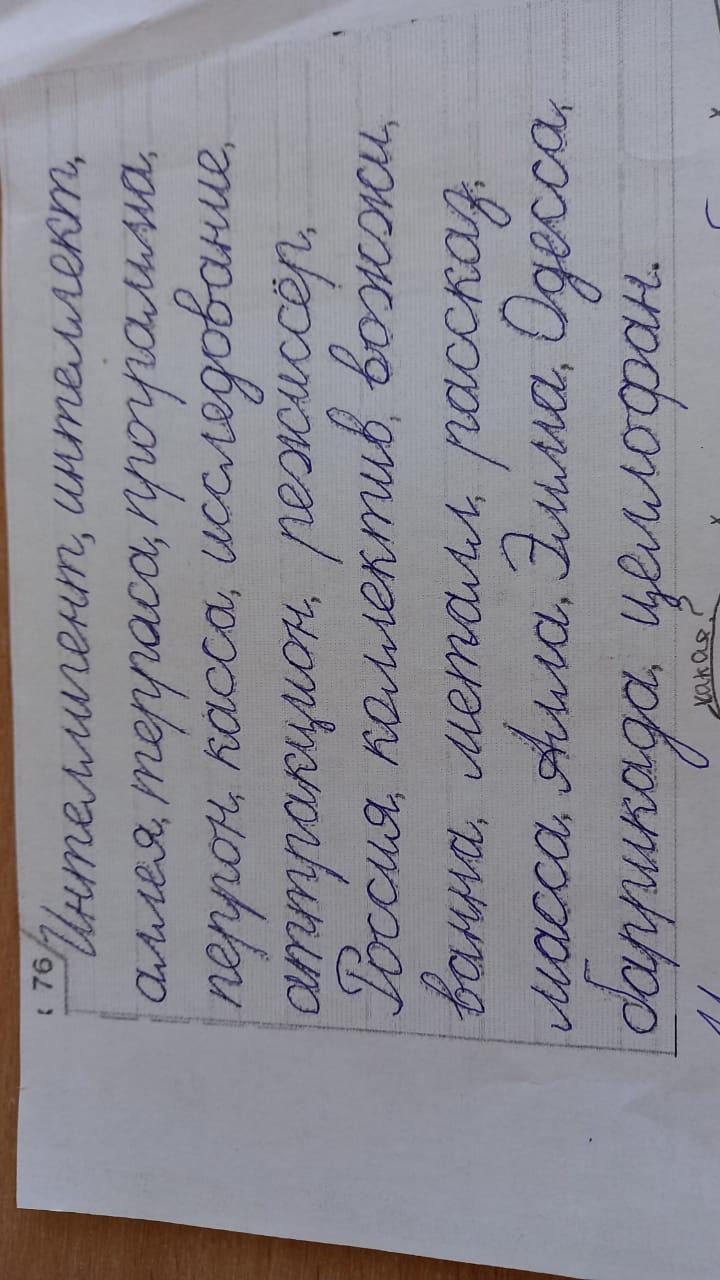 76
Интеллигент, интеллект,
аллея, терраса, программа,
перрон, касса, исследование,
аттракцион, режиссёр,
Россия, коллектив, вожжи,
ванна, металл, рассказ,
масса, Алла, Эмма, Одесса,
баррикада, целлофан.
какая?